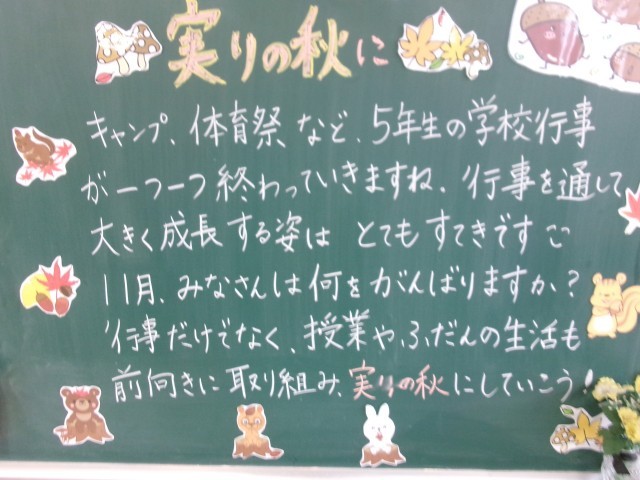 実りの秋に
キャンプ、体育祭など、5年生の学校行事
が一つ一つ終わっていきますね。行事を通して
大きく成長する姿は とてもすてきです
11月、みなさんは何をがんばりますか?
行事だけでなく、授業や、ふだんの生活も
前向きに取り組み、実りの秋にしていこう!